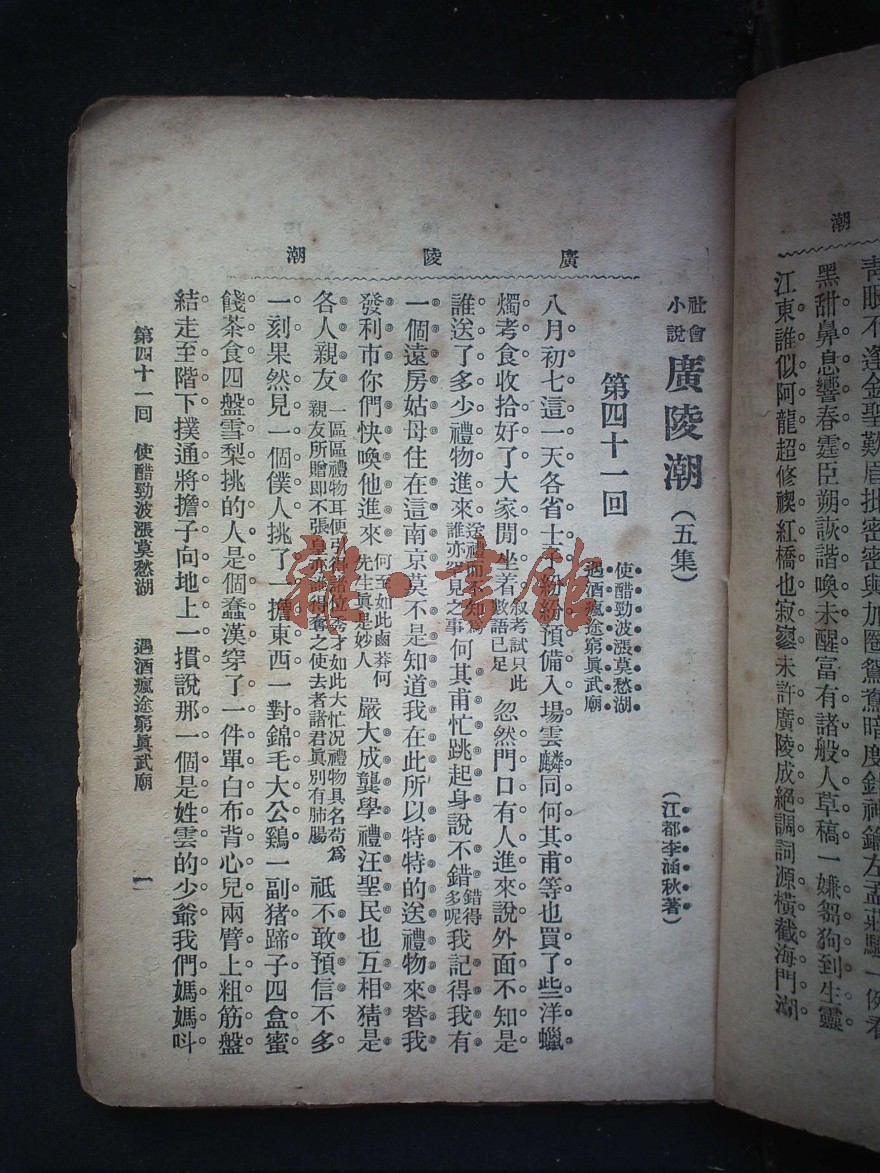 潮
青眼不逢金聖歎眉批密密與加圈鴛鴦暗度針神鑰左孟莊騷一例看
黑甜鼻息響春霆臣朔詼諧喚未醒富有諸般人草稿一嫌芻狗到生靈
江東誰似阿龍超修禊紅橋也寂寥未許廣陵成絕調詞源橫截海門潮
廣陵潮
社會小說 廣陵潮(五集)
(江都李涵秋著)
第四十一回
使醋勁波漲莫愁湖
遇酒瘋途窮眞武廟
八月初七這一天各省士子紛紛預備入場雲麟同何其甫等也買了些洋蠟
燭考食收拾好了大家閒坐着敍考試只此數語已足忽然門口有人進來說外面不知是
誰送了多少禮物進來送禮而不知爲誰亦罕見之事何其甫忙跳起身說不錯錯得多呢我記得我有
一個遠房姑母住在這南京莫不是知道我在此所以特特的送禮物來替我
發利市你們快喚他進來何至如此鹵莽何先生眞是妙人嚴大成龔學禮汪聖民也互相猜是
各人親友一區區禮物耳便引得諸位秀才如此大忙況禮物具名苟爲親友所贈即不張皇亦誰得奪之使去者諸君眞別有肺腸祇不敢預信不多
一刻果然見一個僕人挑了一擔東西一對錦毛大公鷄一副猪蹄子四盒蜜
餞茶食四盤雪梨挑的人是個蠢漢穿了一件單白布背心兒兩臂上粗筋盤
結走至階下撲通將擔子向地上一摜說那一個是姓雲的少爺我們媽媽呌
第四十一回 使醋勁波漲莫愁湖 遇酒瘋途窮眞武廟 一
雜·書館